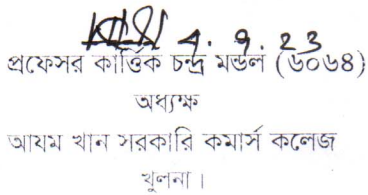 ৫.৭.23
প্রফেসর কার্ত্তিক চন্দ্র মন্ডল (৬০৬৪)
অধ্যক্ষ
আযম খান সরকারি কমার্স কলেজ
খুলনা।